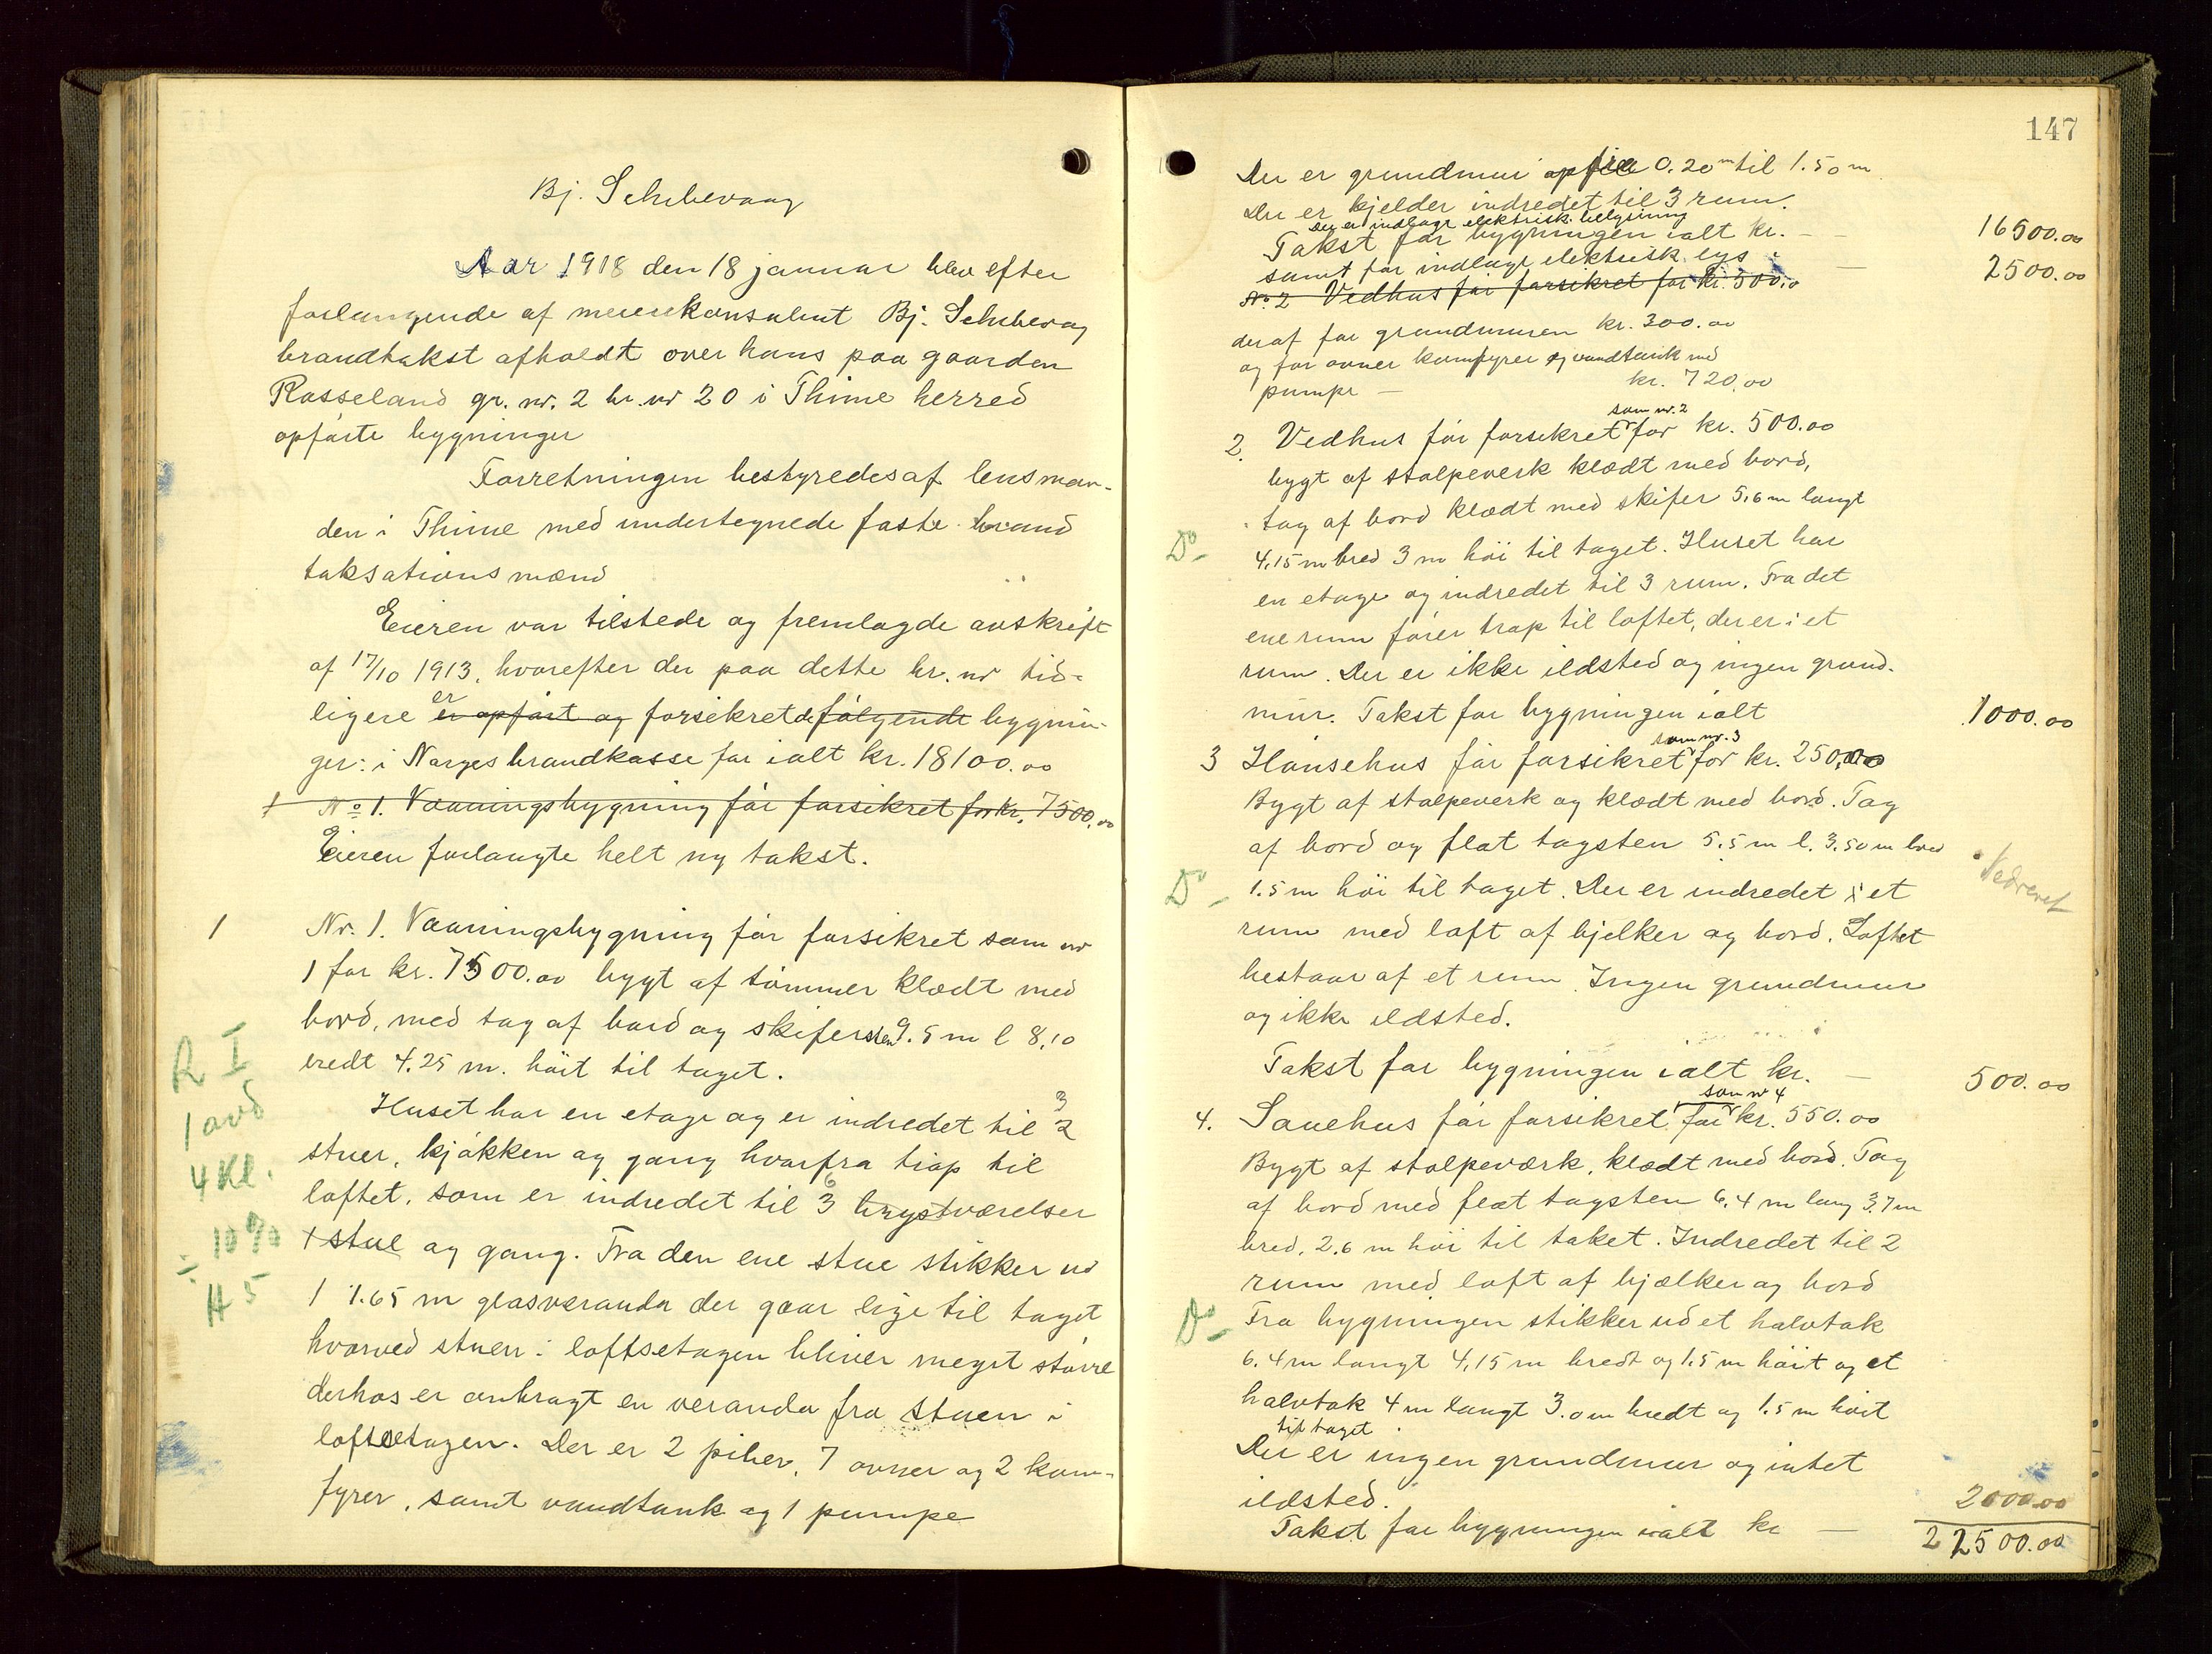 Bj. Selsbevaag
Aar 1918 den 18 januar blev efter
forlangende af meierekonsulent Bj. Selsbevaag
brandtakst afholdt over hans paa gaarden
Rosseland gr. nr. 2 br. nr 20 i Thime herred
opførte bygninger
Forretningen bestyredes af lensman-
den i Thime med undertegnede faste brand
taksationsmænd
Eieren var tilstede og fremlagde avskrift
af 17/10 1913, hvorefter der paa dette br. nr tid-
ligere er er opført og forsikret de følgende bygnin-
ger: i Norges brandkasse for ialt kr. 18100.00
1 No 1. Vaaningsbygning før forsikret for kr. 7500.00
Eieren forlangte helt ny takst.
1 Nr. 1. Vaaningsbygning før forsikret som nr
1 for kr. 7500.00 bygt af tømmer klædt med
bord, med tag af bord og skifersten 9.5 m l 8,10
bredt 4.25 m. høit til taget.
Huset har en etage og er indredet til 3 2
stuer, kjøkken og gang hvorfra trap til
loftet, som er indredet til 6 3 brystværelser
1 stue og gang. Fra den ene stue stikker ud
1 1.65 m glasveranda der gaar lige til taget
hvorved stuen i loftsetagen bliver meget større
derhos er anbragt en veranda fra stuen i
loftsetagen. Der er 2 piber, 7 ovner og 2 kom-
fyrer, samt vandtank og 1 pumpe
R I
1 avd
4 Kl.
÷ 10%
H 5
147
Der er grundmur op fra 0.20 m til 1.50 m
Der er kjelder indredet til 3 rum.
Der er indlagt elektrisk belysning
Takst for bygningen ialt kr. — 16500.00
samt for indlagt elektrisk lys — 2500.00
No 2 Vedhus før forsikret for kr. 500.00
deraf for grundmuren kr. 300.00
og for ovner komfyrer og vandtank med
pumpe — kr. 720.00
2. Vedhus før forsikret som nr. 2 for kr. 500.00
bygt af stolpeverk klædt med bord,
tag af bord klædt med skifer 5,6 m langt
Do - 4,15 m bred 3 m høi til taget. Huset har
en etage og indredet til 3 rum. Fra det
ene rum fører trap til loftet, der er i et
rum. Der er ikke ildsted og ingen grund-
mur. Takst for bygningen ialt 1000.00
3 Hønsehus før forsikret som nr. 3 for kr. 250,00
Bygt af stolpeverk og klædt med bord. Tag
af bord og flat tagsten 5.5 m l. 3.50 m bred
Do - 1.5 m høi til taget. Der er indredet i et
Nedrevet
rum med loft af bjelker og bord. Loftet
bestaar af et rum. Ingen grundmur
og ikke ildsted.
Takst for bygningen ialt kr. — 500.00
4. Sauehus før forsikret som nr 4 for kr. 550.00
Bygt af stolpeværk, klædt med bord. Tag
af bord med flat tagsten 6,4 m lang 3.7 m
bred, 2.6 m høi til taket. Indredet til 2
rum med loft af bjælker og bord
Do - Fra bygningen stikker ud et halvtak
6.4 m langt 4,15 m bredt og 1.5 m høit og et
halvtak 4 m langt 3.0 m bredt og 1.5 m høit
til taget
Der er ingen grundmur og intet
ildsted. 2000.00
Takst for bygningen ialt kr —
22500.00